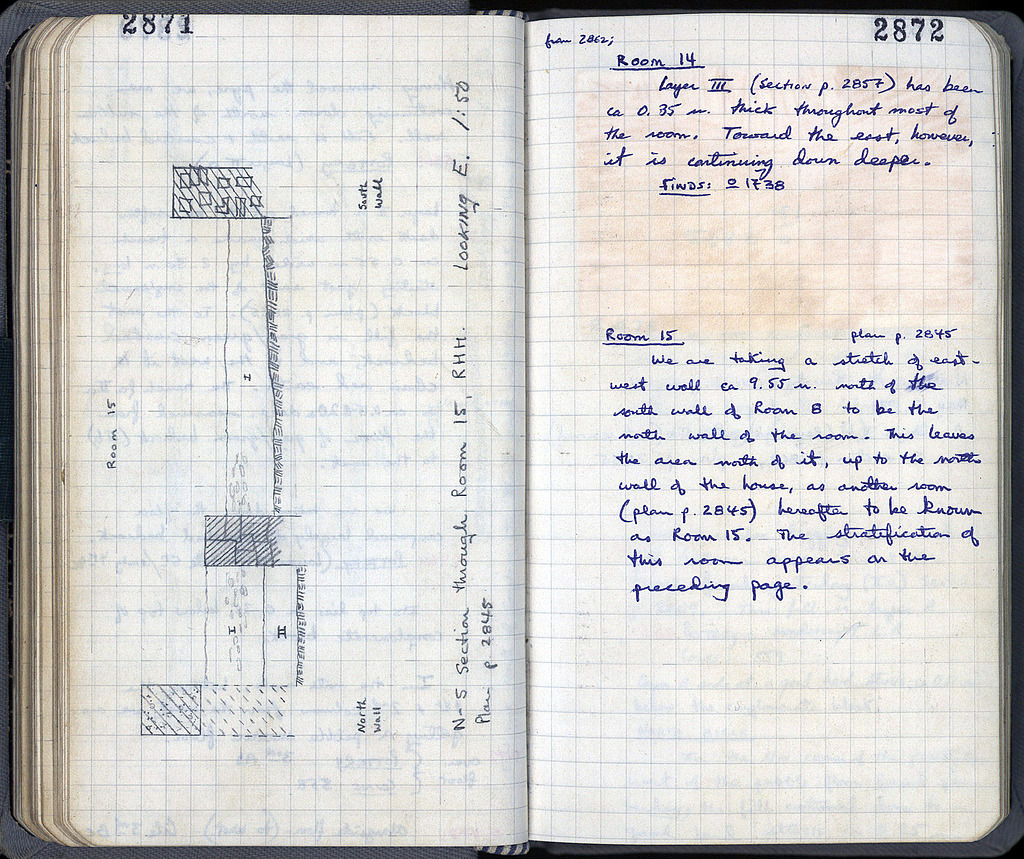 2871
South
Wall
Room 15
I
I
II
North
Wall
N-S Section through Room 15, RHH. Looking E. 1:50
Plan p 2845
2872
from 2862;
Room 14
Layer III (section p. 2857) has been
ca 0.35 m. thick throughout most of
the room. Toward the east, however,
it is continuing down deeper.
FINDS: 1738
Room 15 plan p. 2845
We are taking a stretch of east-
west wall ca 9.55 m. north of the
south wall of Room 8 to be the
north wall of the room. This leaves
the area north of it, up to the north
wall of the house, as another room
(plan p. 2845) hereafter to be known
as Room 15. The stratification of
this room appears on the
preceding page.